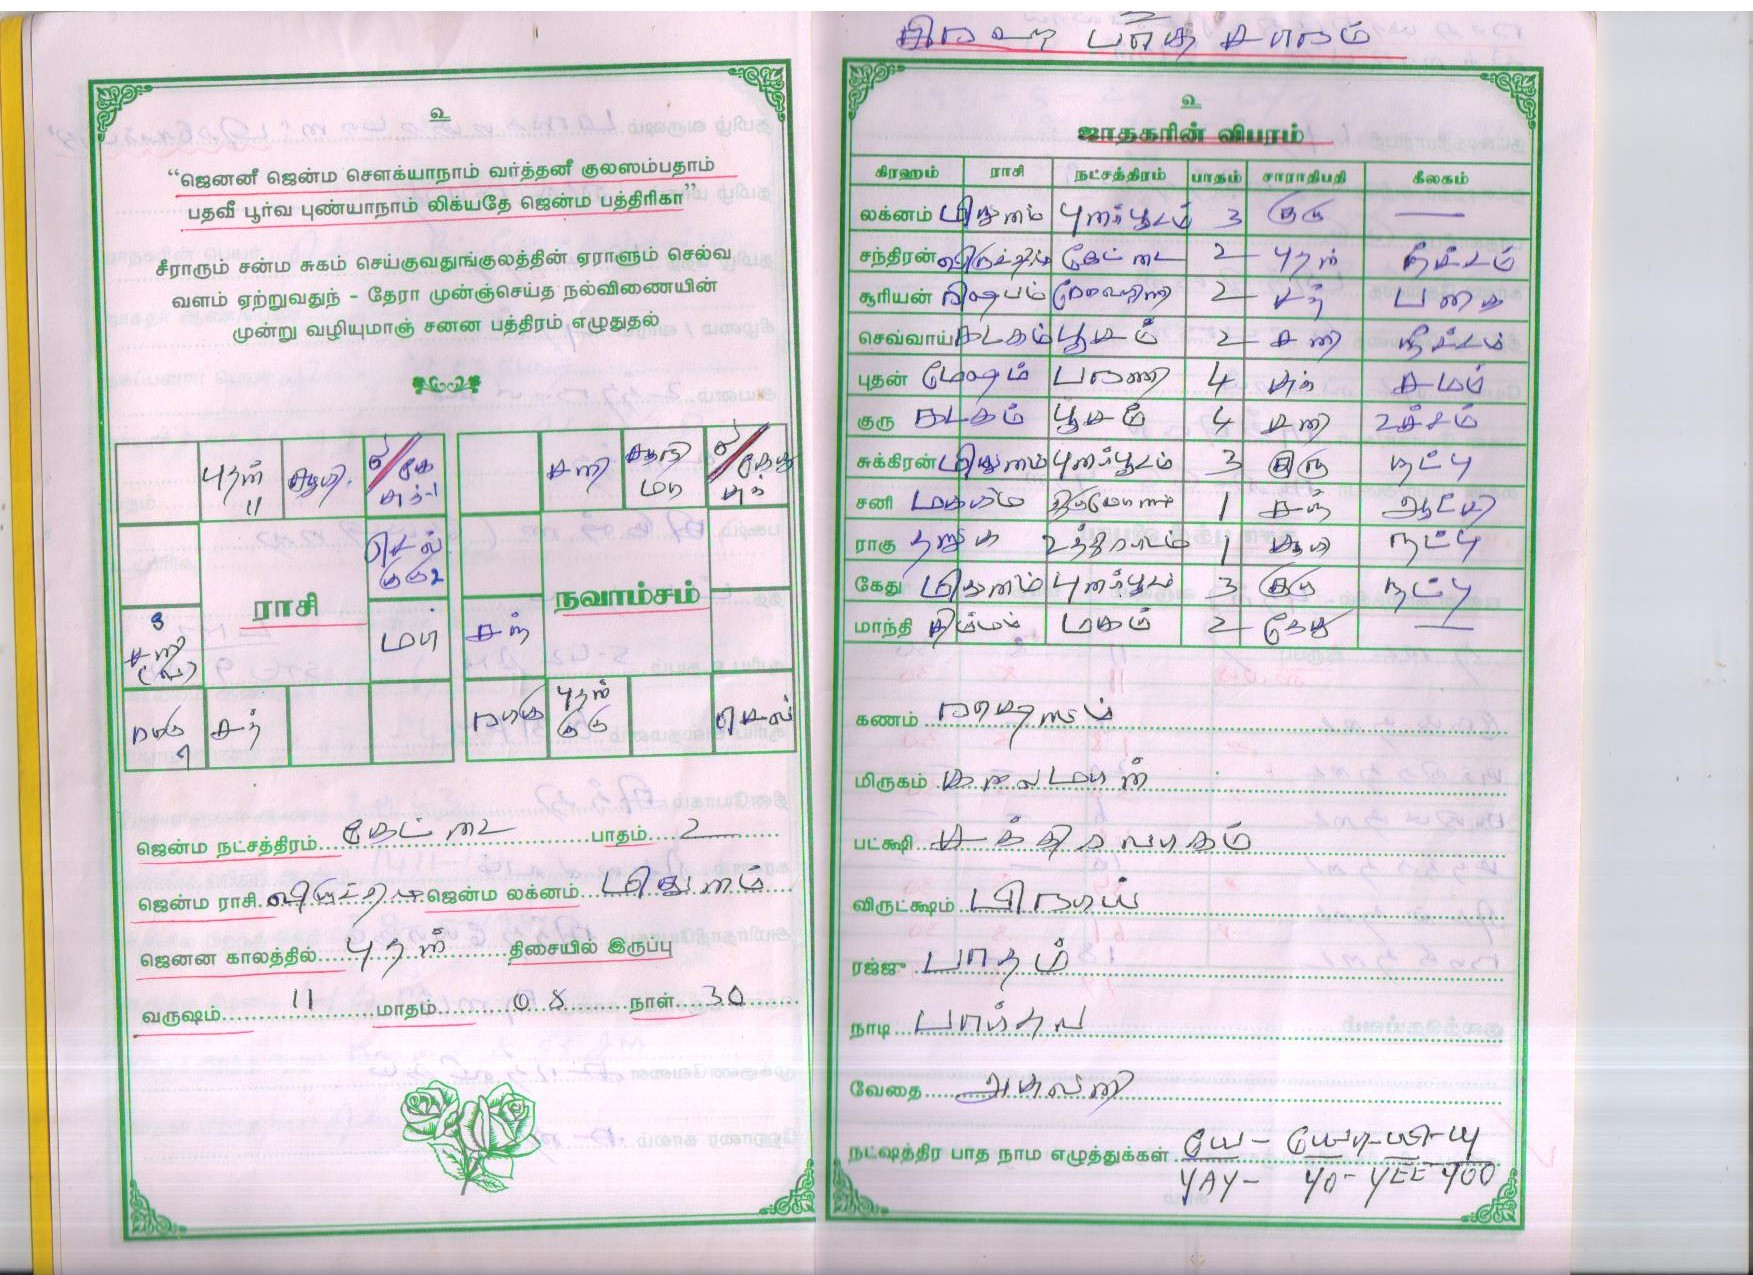 உ
"ஜெனனீ ஜென்ம சௌக்யாநாம் வர்த்தனீ குலஸம்பதாம்
பதவீ பூர்வ புண்யாநாம் லிக்யதே ஜென்ம பத்திரிகா"
சீராரும் சன்ம சுகம் செய்குவதுங்குலத்தின் ஏராளும் செல்வ
வளம் ஏற்றுவதுந் - தேரா முன்ஞ்செய்த நல்விணையின்
முன்று வழியுமாஞ் சனன பத்திரம் எழுதுதல்
புதன் 11 சூரி. ல/கே சுக்-1
செவ் குரு2
ராசி
3 சனி (வ) மா
ராகு 9 சந்
சனி சூரி மா ல/கேது சுக்
நவாம்சம்
சந்
ராகு புதன் குரு செவ்
ஜென்ம நட்சத்திரம் கேட்டை பாதம் 2
ஜென்ம ராசி விருச்சிகம் ஜென்ம லக்னம் மிதுனம்
ஜெனன காலத்தில் புதன் திசையில் இருப்பு
வருஷம் 11 மாதம் 08 நாள் 30
உ
ஜாதகரின் விபரம்
கிரஹம் ராசி நட்சத்திரம் பாதம் சாராதிபதி கீலகம்
லக்னம் மிதுனம் புனர்பூசம் 3 குரு —
சந்திரன் விருச்சிகம் கேட்டை 2 புதன் நீச்சம்
சூரியன் ரிஷபம் ரோகிணி 2 சந் பகை
செவ்வாய் கடகம் பூசம் 2 சனி நீச்சம்
புதன் மேஷம் பரணி 4 சுக் சமம்
குரு கடகம் பூசம் 4 சனி உச்சம்
சுக்கிரன் மிதுனம் புனர்பூசம் 3 குரு நட்பு
சனி மகரம் திருவோணம் 1 சந் ஆட்சி
ராகு தனுசு உத்திராடம் 1 சூரி நட்பு
கேது மிதுனம் புனர்பூசம் 3 குரு நட்பு
மாந்தி சிம்மம் மகம் 2 கேது —
கணம் ராஷஸம்
மிருகம் கலைமான்
பட்க்ஷி சக்கிரவாகம்
விருட்க்ஷம் பிராய்
ரஜ்ஜு பாதம்
நாடி பார்சுவ
வேதை அசுவனி
நட்ஷத்திர பாத நாம எழுத்துக்கள் யே- யோ-யி-யு
YAY- YO- YEE YOO